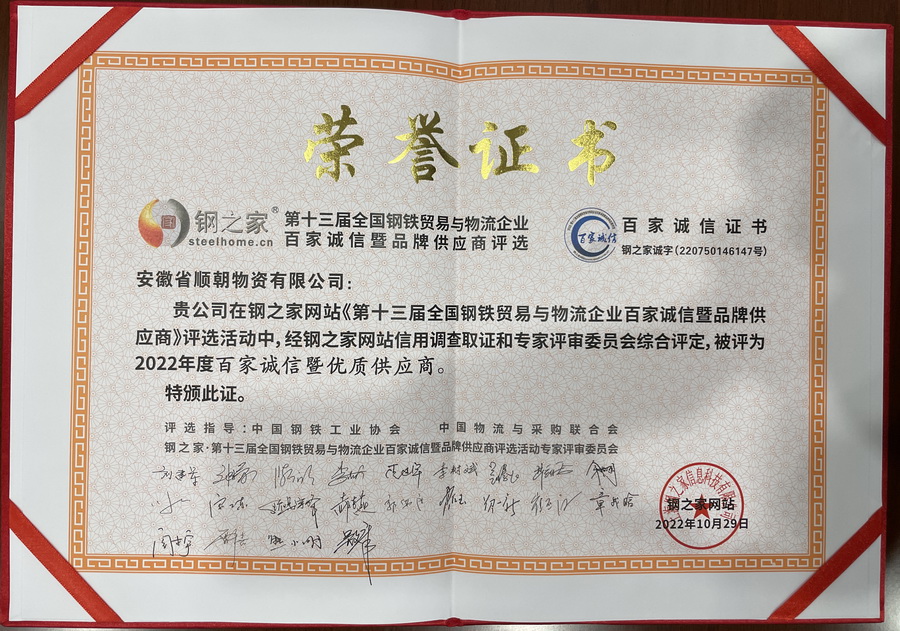 荣誉证书
钢之家®
steelhome.cn
第十三届全国钢铁贸易与物流企业
百家诚信暨品牌供应商评选
百家诚信
百家诚信证书
钢之家诚字(220750146147号)
安徽省顺朝物资有限公司：
贵公司在钢之家网站《第十三届全国钢铁贸易与物流企业百家诚信暨品牌供
应商》评选活动中，经钢之家网站信用调查取证和专家评审委员会综合评定，被评为
2022年度百家诚信暨优质供应商。
特颁此证。
评选指导：中国钢铁工业协会 中国物流与采购联合会
钢之家·第十三届全国钢铁贸易与物流企业百家诚信暨品牌供应商评选活动专家评审委员会
钢之家网站
2022年10月29日